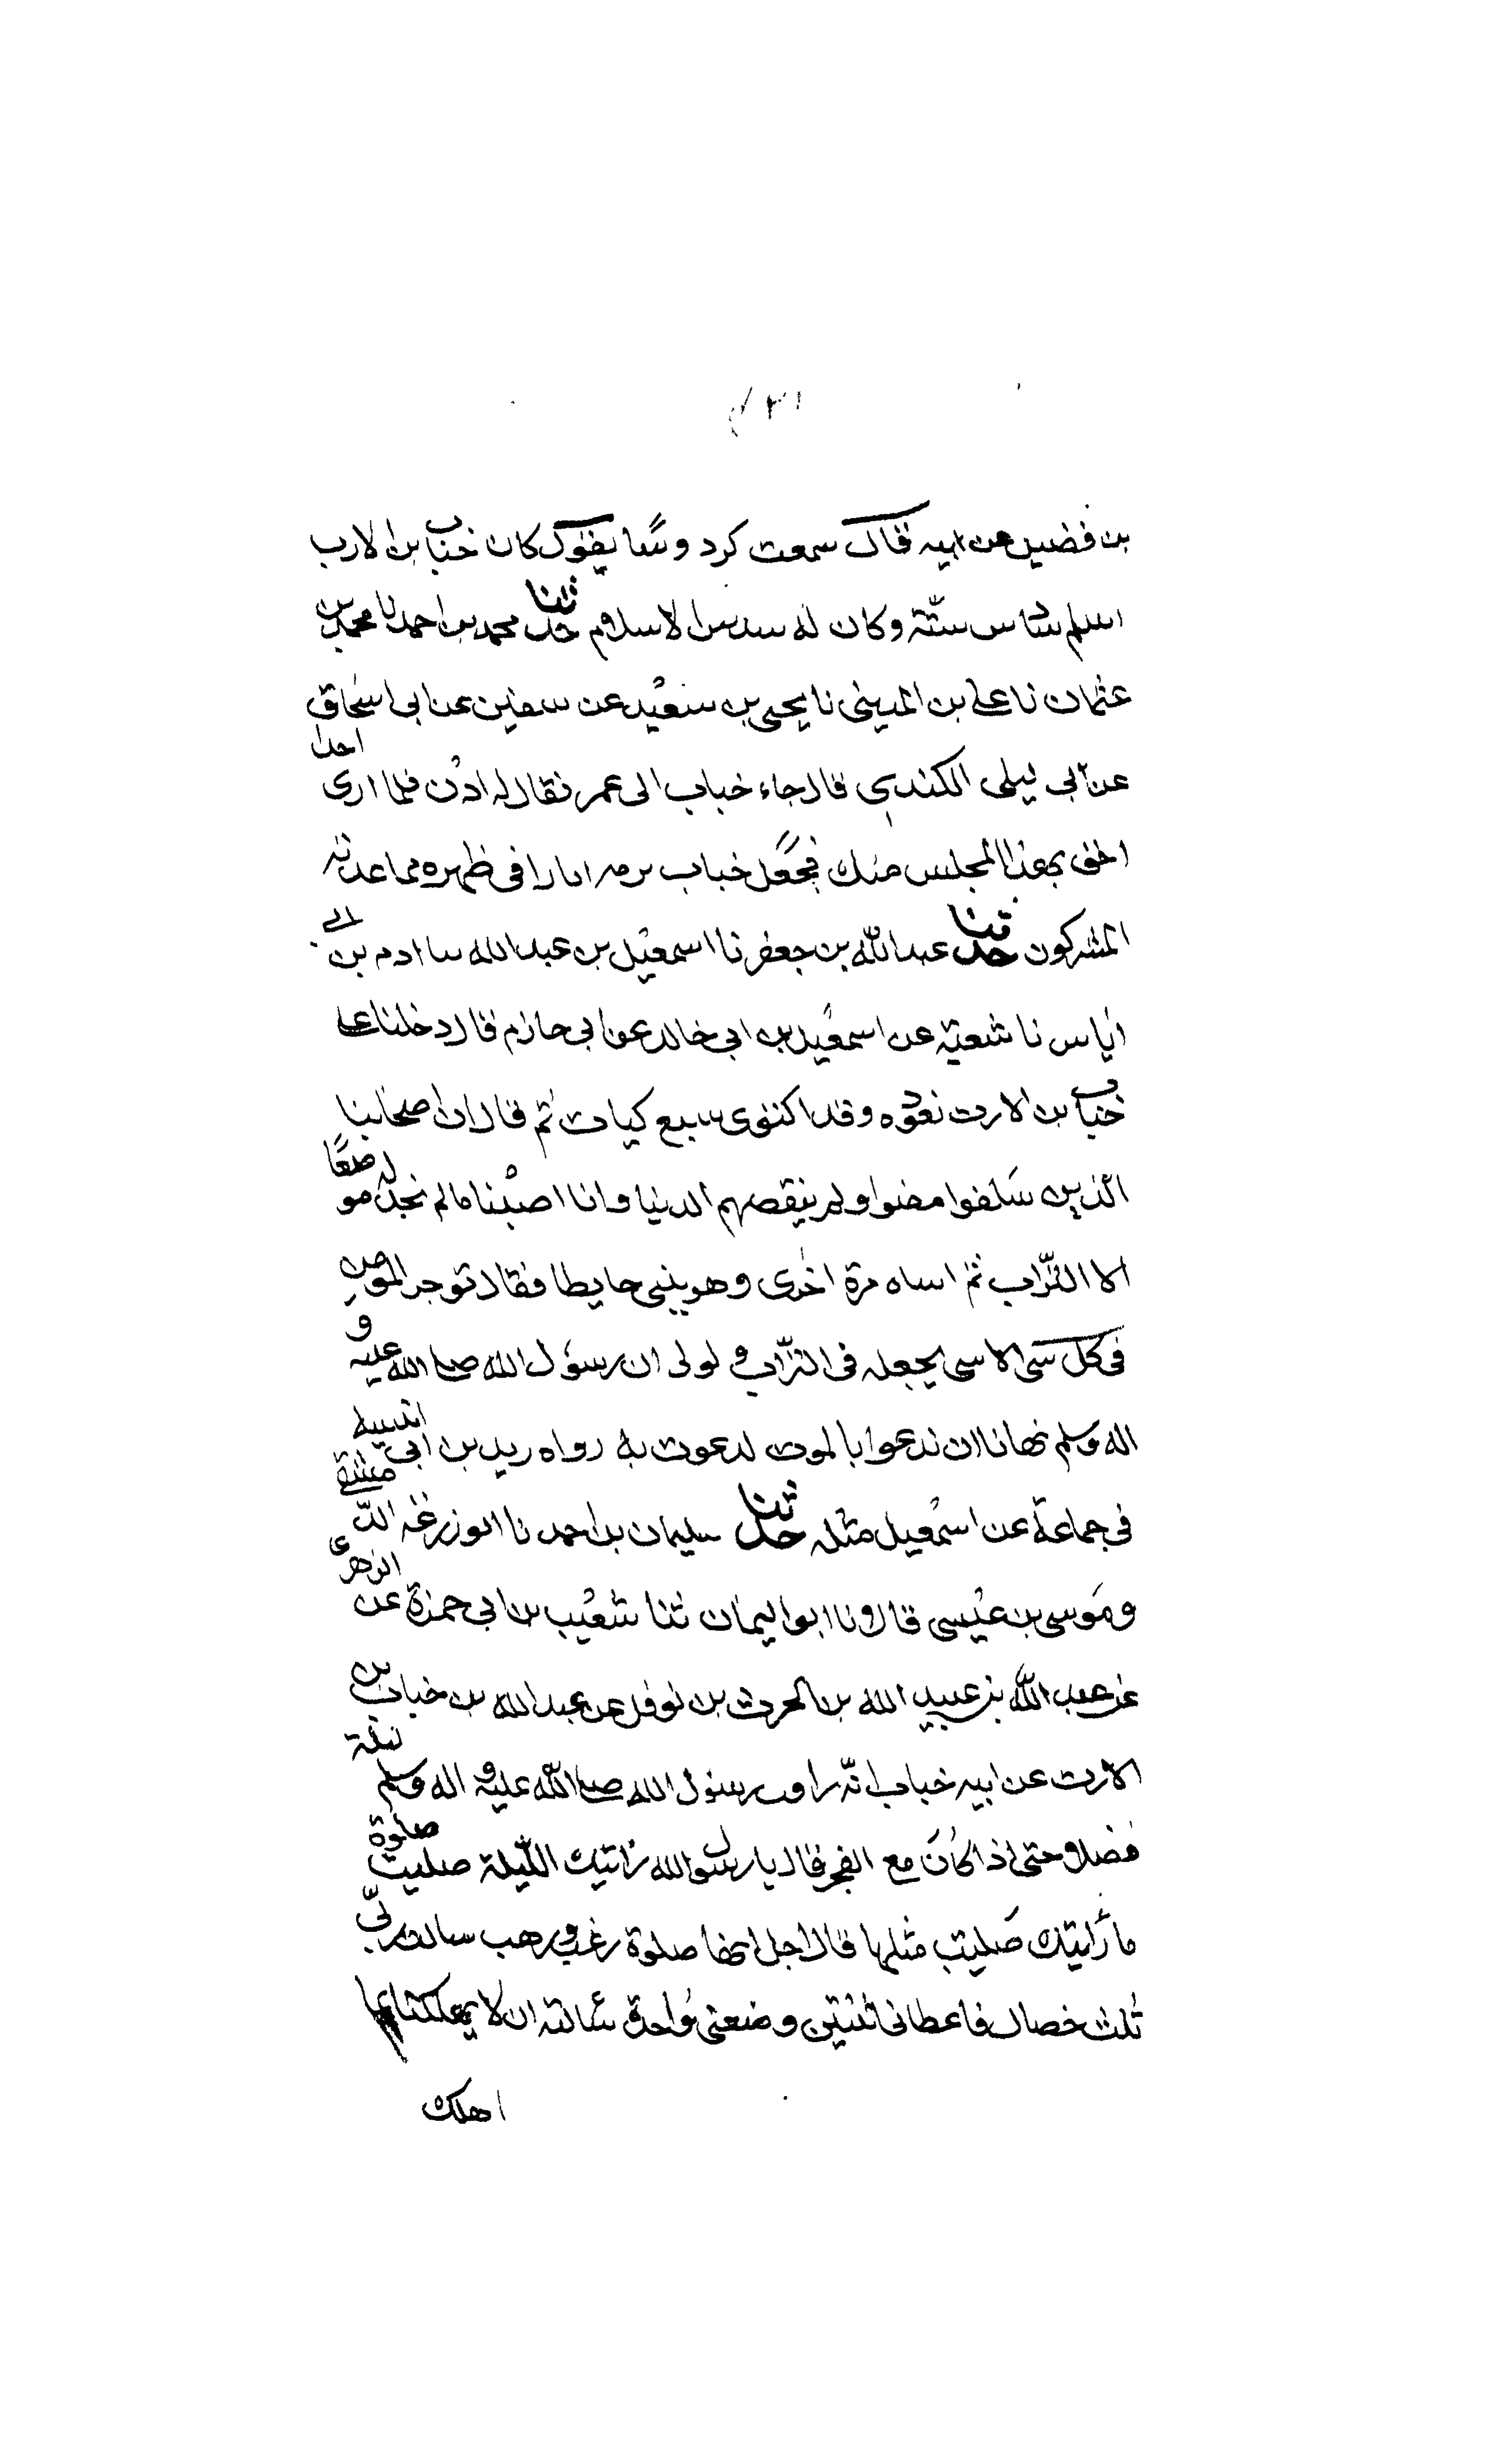 بن فضيل عن ابيه قال سمعت كردوسًا يقول كان خباب بن الارت
اسلم سادس ستّة وكان له سدس الاسلام حدثنا محمد بن احمد نا محمد بن
عثمان نا على بن المدينى نا يحيى بن سعيد عن سفين عن ابى اسحاق
عن ابى ليلى الكندى قال جاء خباب الى عمر فقال له ادن فما ارى احدا
احق بهذا المجلس منك فجعل خباب يريه اثارا فى ظهره مما عذبه
المشركون حدثنا عبد الله بن جعفر نا اسمعيل بن عبد الله سا ادم بن ابى
اياس نا شعبة عن اسمعيل بن ابى خالد عن ابى حازم قال دخلنا على
خباب بن الارت نعوده وقد اكتوى سبع كيات ثم قال ان اصحابنا
الذين سلفوا مضوا ولم ينقصهم الدنيا وانا اصبنا مالم نجد له موضعًا
الا التراب ثم اساه مرة اخرى وهو يبنى حايطا فقال توجر المومن
فى كل شى الا سى يجعله فى التراب و لولى ان رسول الله صلى الله عليه و
اله وسلم نهانا ان ندعوا بالموت لدعوت به رواه زيد بن ابى انيسة
فى جماعة عن اسمعيل مثله حدثنا سليمان بن احمد نا ابو زرعة الدمشقى
وموسى بن عيسى قالا نا ابو اليمان ثنا شعيب بن ابى حمزة عن الزهرى
عن عبد الله بن عبيد الله بن الحرث بن نوفل عن عبد الله بن خباب بن
الارت عن ابيه خباب انّه راقب رسول الله صلى الله عليه و اله وسلم ليلة
فصلا حتى اذا كان مع الفجر قال يا رسول الله رايتك الليلة صليت صلوة
ما رايتك صليت مثلها قال اجل انها صلوة رغب ورهب سالت ربّى
ثلث خصال فاعطانى ثنتين ومنعنى واحدة سالته ان لا يهلكنا بما
اهلك